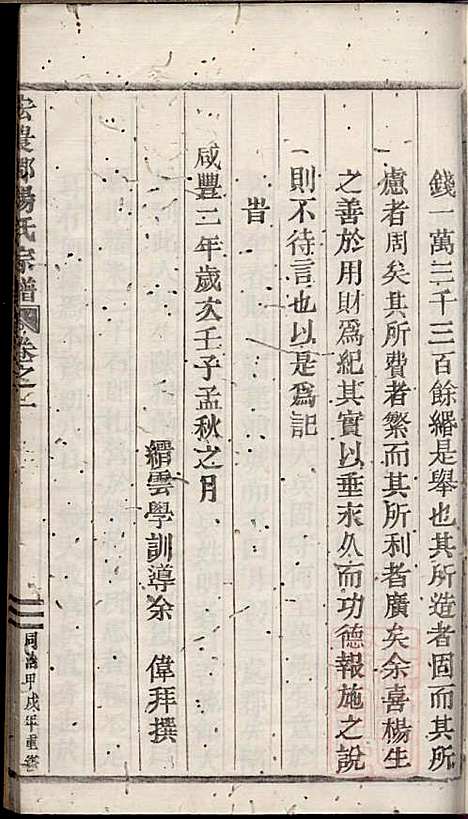 錢一萬三千三百餘緡是舉也其所造者固而其所
慮者周矣其所費者繁而其所利者廣矣余喜楊生
之善於用財爲紀其實以垂永久而功德報施之說
則不待言也以是爲記
旹
咸豐二年歲次壬子孟秋之月
縉雲學訓導余 偉拜撰
宏農郡楊氏宗譜 卷之一
同治甲戌年重鐫